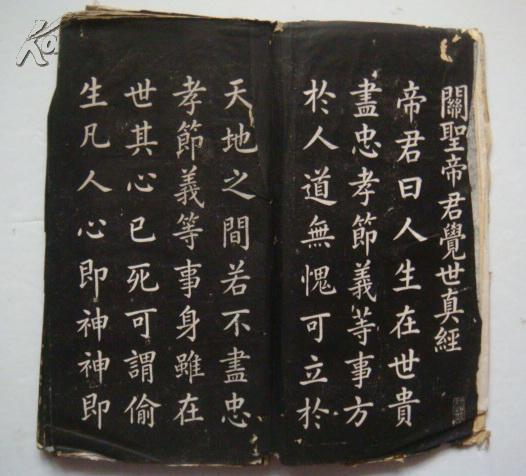 關聖帝君覺世真經
帝君曰人生在世貴
盡忠孝節義等事方
於人道無愧可立於
天地之間若不盡忠
孝節義等事身雖在
世其心已死可謂偷
生凡人心即神神即